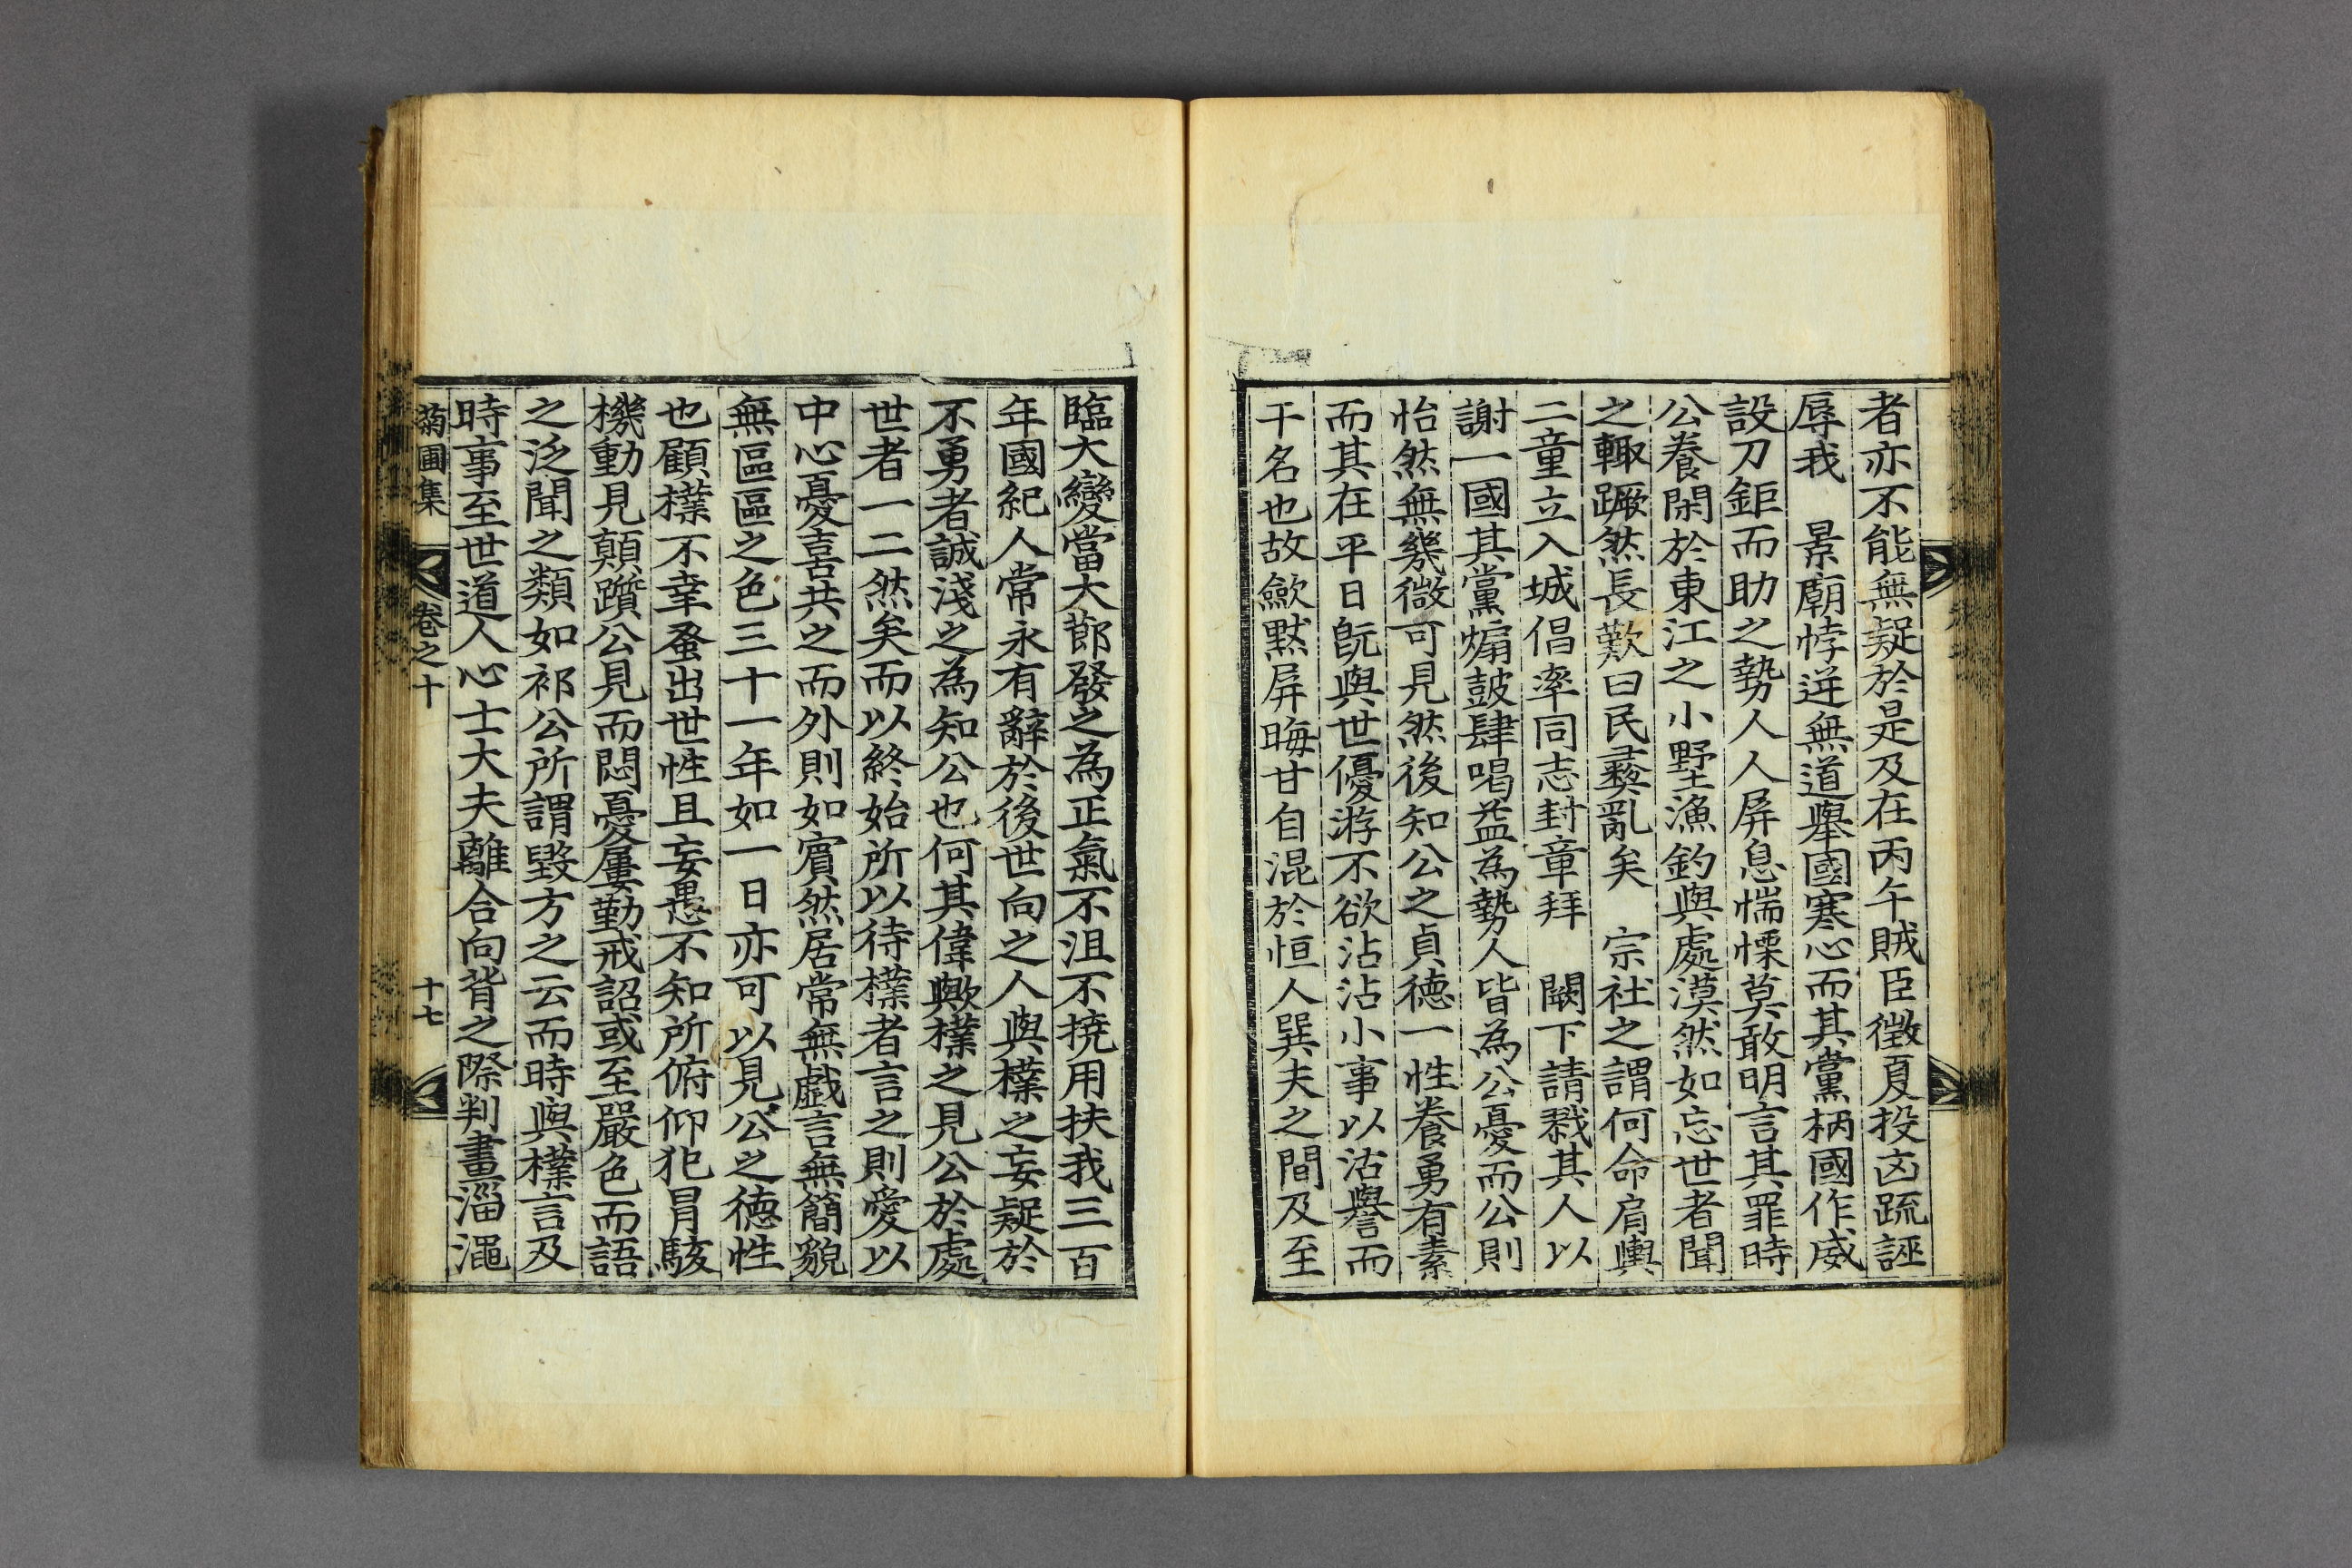 者亦不能無疑於是及在丙午賊臣徵夏投凶疏誣
辱我　景廟悖逆無道擧國寒心而其黨柄國作威
設刀鉅而助之勢人人屏息惴慄莫敢明言其罪時
公養閑於東江之小墅漁釣與處漠然如忘世者聞
之輙蹶然長歎曰民彝亂矣　宗社之謂何命肩輿
二童立入城倡率同志封章拜　闕下請戮其人以
謝一國其黨煽鼓肆喝益為勢人皆為公憂而公則
怡然無幾微可見然後知公之貞德一性養勇有素
而其在平日旣與世優游不欲沾沾小事以沽譽而
干名也故歛黙屏晦甘自混於恒人巽夫之間及至
臨大變當大節發之為正氣不沮不撓用扶我三百
年國紀人常永有辭於後世向之人與檏之妄疑於
不勇者誠淺之為知公也何其偉歟檏之見公於處
世者一二然矣而以終始所以待檏者言之則愛以
中心憂喜共之而外則如賓然居常無戱言無簡貌
無區區之色三十一年如一日亦可以見公之德性
也顧檏不幸蚤出世性且妄愚不知所俯仰犯冒駭
機動見顛躓公見而悶憂屢勤戒詔或至嚴色而語
之泛聞之類如祁公所謂毀方之云而時與檏言及
時事至世道人心士大夫離合向背之際判畫淄澠
菊圃集　卷之十　十七